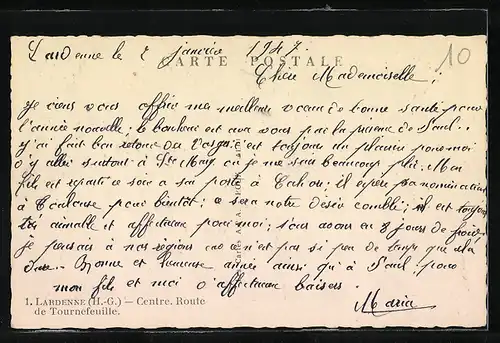 Lardenne le 2 janvier 1947.
10
CARTE POSTALE
Chère Mademoiselle,
Je viens vous offrir mes meilleurs vœux de bonne santé pour
l'année nouvelle, le bonheur est avec vous par la présence de Paul..
j'ai fait bon retour du
est toujours du plaisir pour moi
d'y aller surtout à Ste Marg où je me suis beaucoup plu. Mon
fils est reparti ce soir a son poste à Cahors; il espère sa nomination
à Toulouse pour bientôt; ce sera notre désir comblé; il est toujours
très aimable et affectueux pour moi; nous avons eu 8 jours de froid
je pensais à nos régions
n'est pas si peu de temps que
Bonne et heureuse année ainsi qu'à Paul, pour
mon fils et moi d'affectueux baisers.
Maria
1. LARDENNE (H.-G.) — Centre. Route
de Tournefeuille.